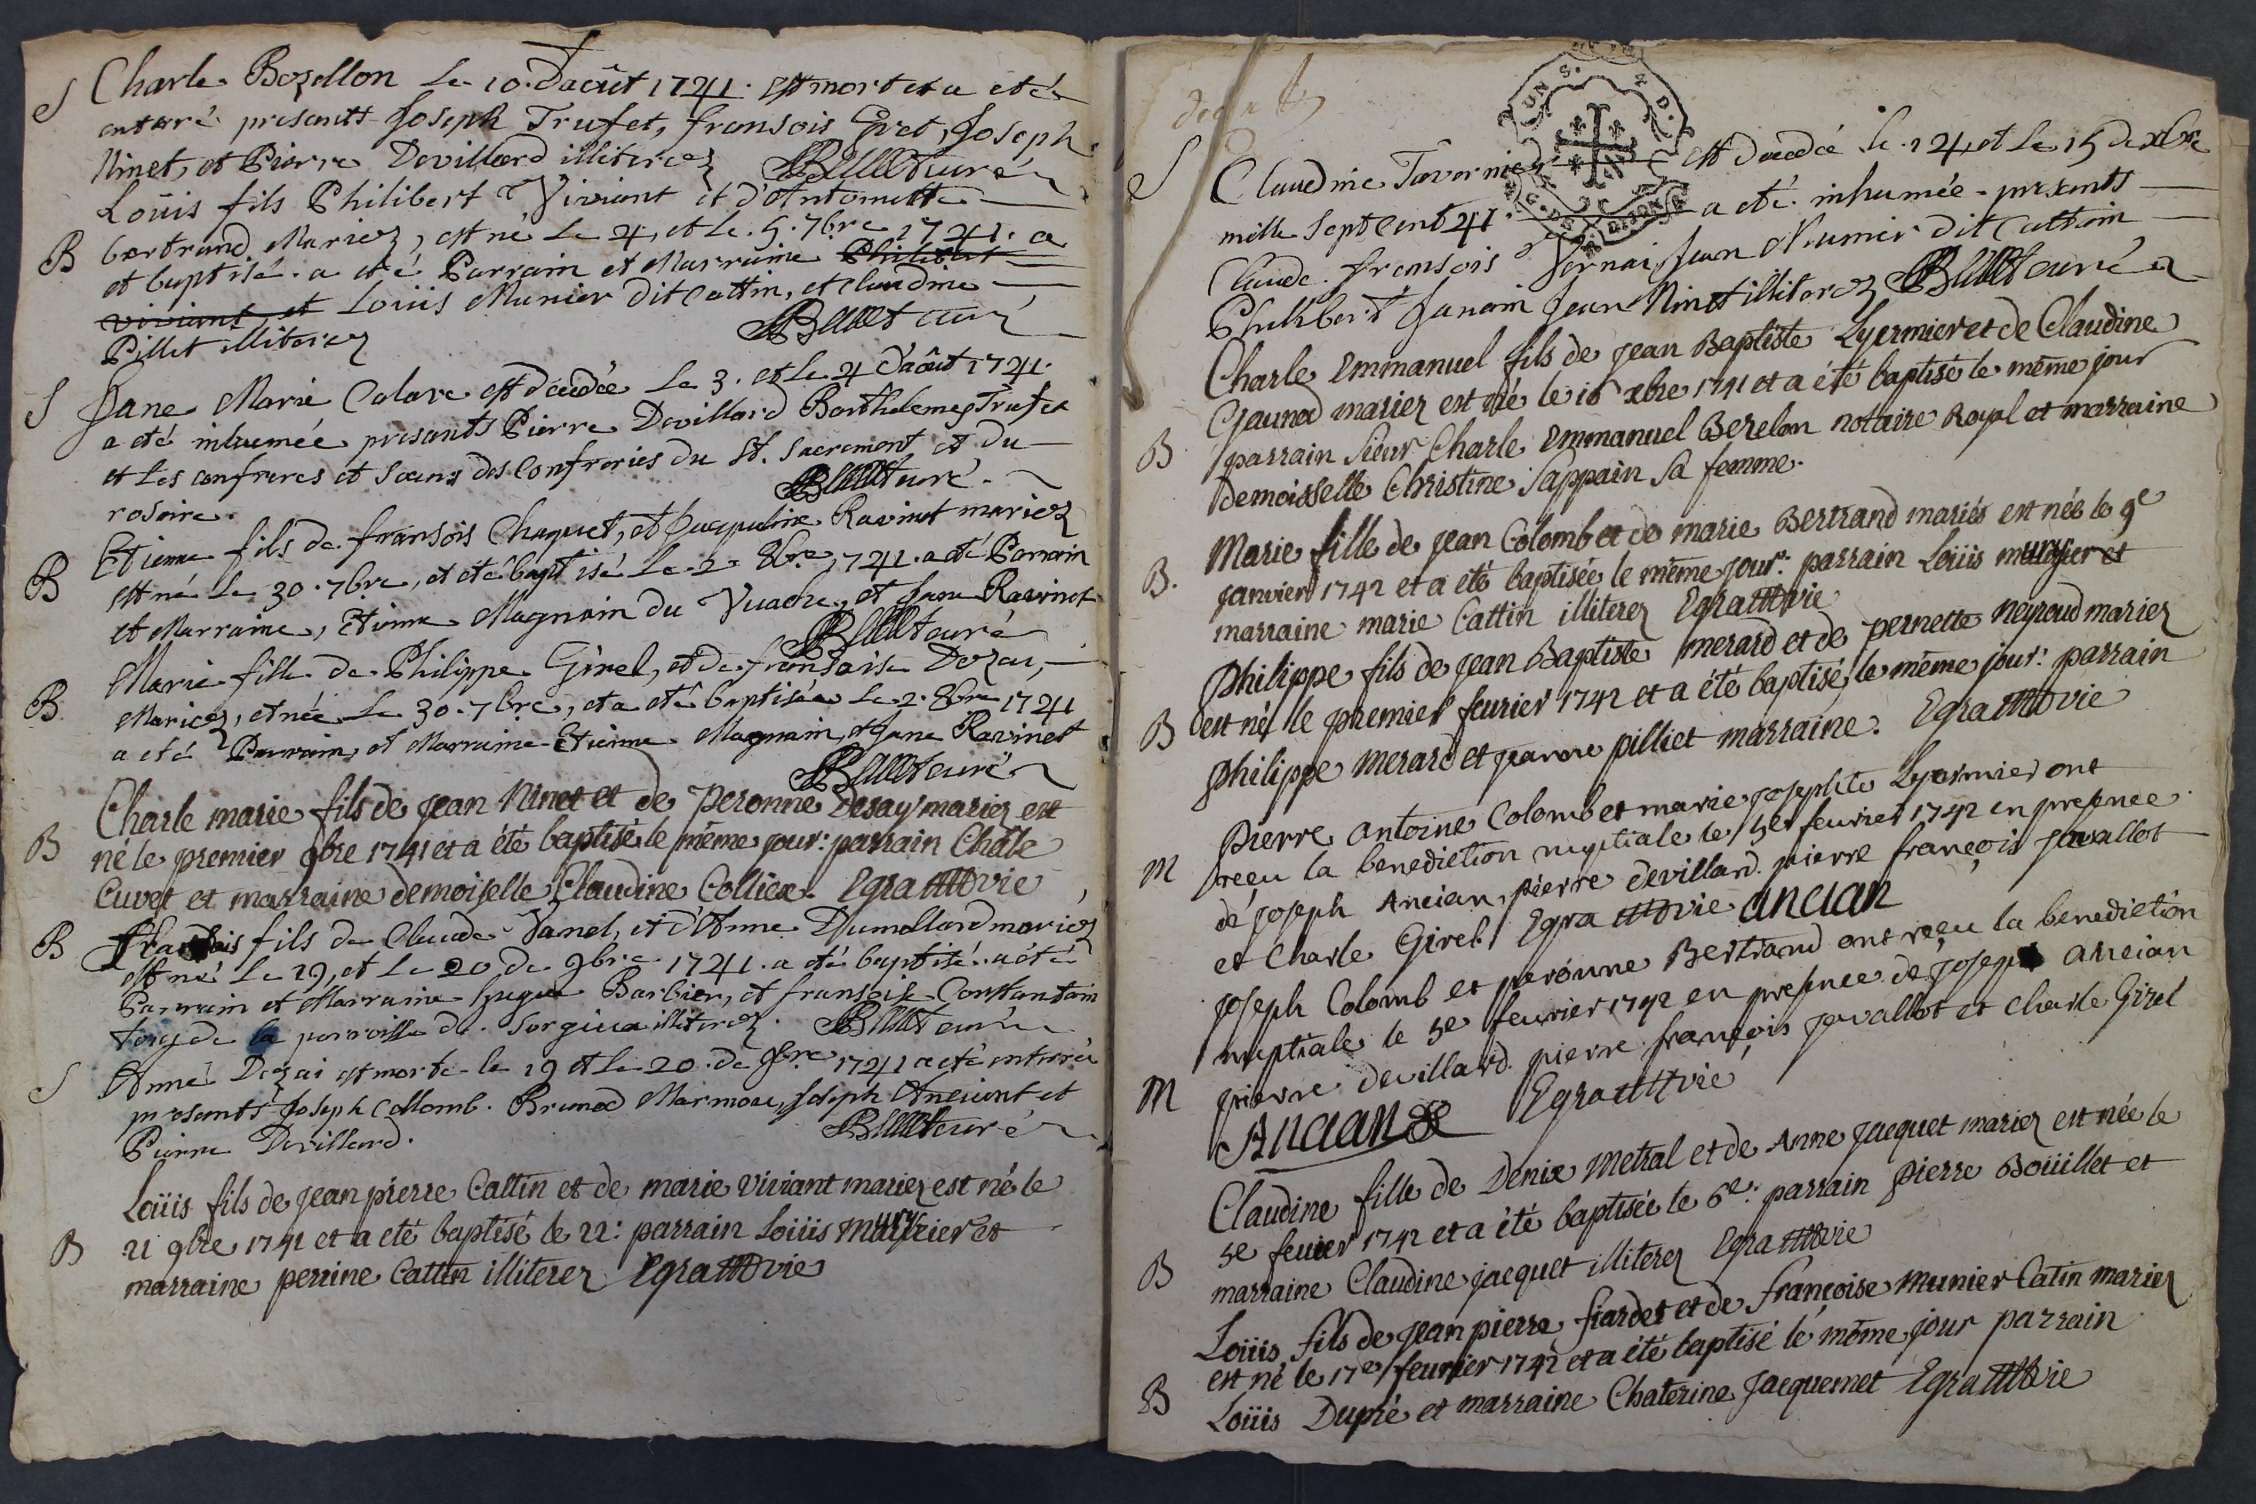 S Charle Bozellon Le 10. Daoüt 1741. est mort et a eté
enterré presents Joseph Trufet, fransois Giret, Joseph
Ninet, et Pierre Devillard illiterez Curé
Loüis fils Philibert Viviant et d'Antoinette
B bertrand Mariez, est né Le 4, et Le. 5. 7bre 1741. a
et baptisé. a eté Parrain et Marraine Philibert
viviant et Loüis Munier dit Cattin, et Claudine
Pillet illiterez Curé
S Jane Marie Colare est décedée Le 3. et Le 4 d'août 1741.
a eté inhumée presants Pierre Devillard Barthelemy Trufet
et Les confreres et Soeurs des Confreries du St. Sacrement et du
rosaire. Curé
Etienne fils de fransois Chaquet, et Jacqueline Ravinet mariez
B est né Le 30. 7bre, et eté baptisé Le 2 8bre 1741. a eté Parrain
et Marraine, Etienne Magnain du Vuache, et Jane Ravinet
Curé
Marie fille de Philippe Girel, et de fransoise Dezai,
B Mariez, et née Le 30. 7bre, et a eté baptisée Le 2. 8bre 1741
a eté Parrain, et Marraine Etienne Magnain, et Jane Ravinet
Curé
Charle marie fils de jean Ninet et de Peronne Desay mariez est
B né le premier 9bre 1741 et a été baptisé le même jour: parrain Chale
Cuvet et marraine demoiselle Claudine Colliex. Egrattovie
B fransois fils de Claude Vanel, et d'Anne Dumollard mariéz
est né Le 19, et Le 20 de 9bre 1741. a eté baptisé. a eté
Parrain et Marraine hugue Barbier, et fransoise Constantain
tous de la parroisse de Sorgieu illiterez. Curé
S Anne Dezai est morte le 19 et Le 20. de 9bre 1741 a eté enterrée
presents Joseph Collomb. Brunod Marmoux, Joseph Anciant et
Pierre Devillard. Curé
Loüis fils de jean pierre Cattin et de marie viviant mariez est né le
B 21 9bre 1741 et a eté baptisé le 22: parrain Loüis et
marraine perrine Cattin illiterez Egrattovie
S Claudine Tavernier est décedée le. 14, et Le 15 de xbre
mille Sept Cent 41. a eté inhumée presents
Claude. fransois Vernai, Jean Munier dit Cattin
Philibert Janain Jean Ninet illiterez Curé
Charle Emmanuel fils de jean Baptiste Lyermier et de Claudine
Cjaunod mariez est né le 16 xbre 1741 et a été baptisé le même jour
B parrain Sieur Charle Emmanuel Berelon notaire Royal et marraine
demoisselle Christine Sappain Sa femme.
Marie fille de jean Colomb et de marie Bertrand mariés est née le 9e
B. janvier 1742 et a été baptisée le même jour: parrain Loüis et
marraine marie Cattin illiterez Egrattovie
Philippe fils de jean Baptiste merard et de pernette neyroud mariez
B est né le premier feurier 1742 et a été baptisé, le même jour: parrain
philippe merard et jeanne pilliet marraine. Egrattovie
Pierre Antoine Colomb et marie josephte Lyermier ont
M reçu la benediction nuptiale le 5er feurier 1742 en presence
de joseph Ancian, pierre devillard. pierre françois javallot
et Charle Girel. Egrattovie ancian
joseph Colomb et peronne Bertrand ont reçu la benediction
nuptiale le 5e feurier 1742 en presence de joseph Ancian
M pierre devillard. pierre françois javallot et charle Girel
Ancian Egrattovie
Claudine fille de Denix metral et de Anne jacquet mariez est née le
5e feuier 1742 et a été baptisée le 6e: parrain pierre Boüillet et
B marraine Claudine jacquet illiterez Egrattovie
Loüis fils de jean pierre fiardet et de françoise munier Catin mariez
est né le 17e feurier 1742 et a été baptisé le même jour parrain
B Loüis Dupré et marraine Chaterine jacquemet Egrattovie